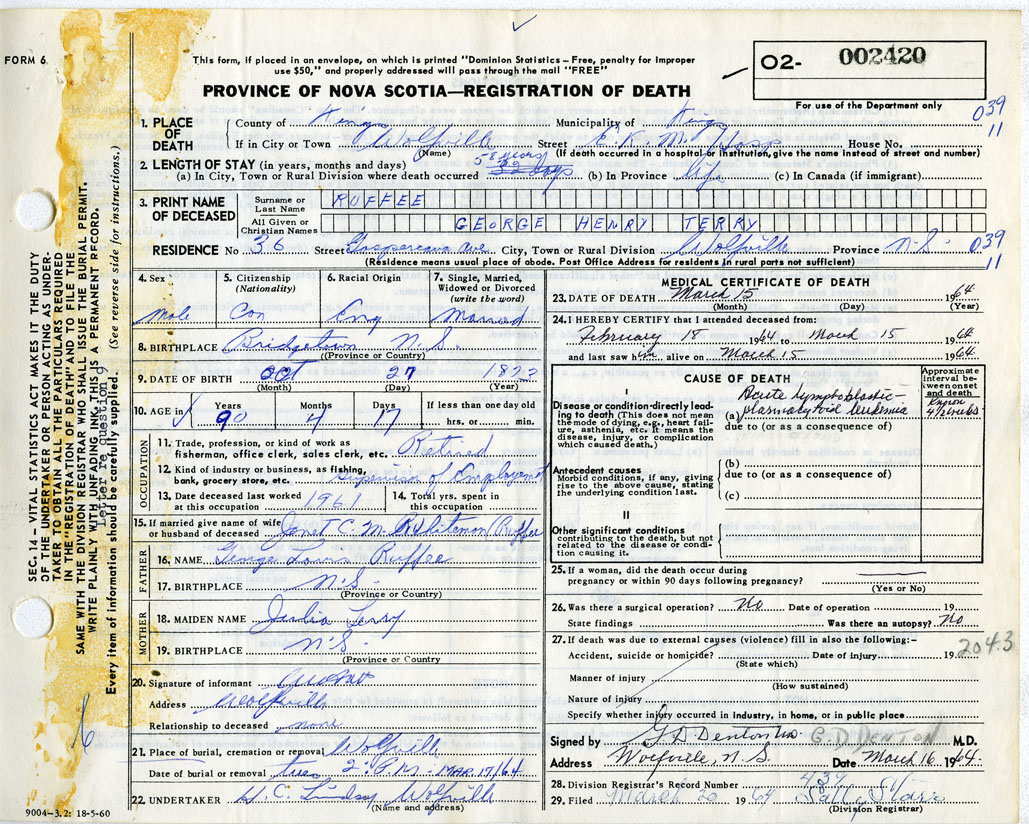 FORM 6
This form, if placed in an envelope, on which is printed "Dominion Statistics – Free, penalty for improper
use $50," and properly addressed will pass through the mail "FREE"
PROVINCE OF NOVA SCOTIA—REGISTRATION OF DEATH
O2- 002420
For use of the Department only
039
11
1. PLACE OF DEATH
County of Kings Municipality of Kings
If in City or Town Wolfville Street E. K. M. Hosp House No.
(Name) (If death occurred in a hospital or institution, give the name instead of street and number)
2. LENGTH OF STAY (in years, months and days)
58 years
(a) In City, Town or Rural Division where death occurred (b) In Province Life (c) In Canada (if immigrant)
3. PRINT NAME OF DECEASED
Surname or Last Name RUFFEE
All Given or Christian Names GEORGE HENRY TERRY
RESIDENCE No 36 Street Gaspereau Ave City, Town or Rural Division Wolfville Province N.S. 039
(Residence means usual place of abode. Post Office Address for residents in rural parts not sufficient) 11
4. Sex
Male
5. Citizenship
(Nationality)
Can
6. Racial Origin
Eng
7. Single, Married,
Widowed or Divorced
(write the word)
Married
8. BIRTHPLACE Bridgetown N.S.
(Province or Country)
9. DATE OF BIRTH OCT 27 1873
(Month) (Day) (Year)
10. AGE in Years Months Days If less than one day
90 4 17 hrs. or min.
OCCUPATION
11. Trade, profession, or kind of work as
fisherman, office clerk, sales clerk, etc. Retired
12. Kind of industry or business, as fishing,
bank, grocery store, etc. Supervisor of Employment
13. Date deceased last worked
at this occupation 1961
14. Total yrs. spent in
this occupation
15. If married give name of wife
or husband of deceased Janet C. M. Ruffee
FATHER
16. NAME George Louis Ruffee
17. BIRTHPLACE N.S.
(Province or Country)
MOTHER
18. MAIDEN NAME Julia Terry
19. BIRTHPLACE N.S.
(Province or Country)
20. Signature of informant
Address Wolfville
Relationship to deceased none
21. Place of burial, cremation or removal Wolfville
Date of burial or removal Tues 2 P.M. MAR. 17/64
22. UNDERTAKER H. C. Lindsay Wolfville
(Name and address)
9004-3.2: 18-5-60
MEDICAL CERTIFICATE OF DEATH
23. DATE OF DEATH March 15 1964
(Month) (Day) (Year)
24. I HEREBY CERTIFY that I attended deceased from:
February 18 1964 to March 15 1964
and last saw him alive on March 15 1964
CAUSE OF DEATH
Approximate
interval be-
tween onset
and death
I
Disease or condition directly lead-
ing to death (This does not mean
the mode of dying, e.g., heart fail-
ure, asthenia, etc. It means the
disease, injury, or complication
which caused death.)
Acute lymphoblastic-
(a) plasmacytoid leukemia
Known
4½ weeks
due to (or as a consequence of)
Antecedent causes
Morbid conditions, if any, giving
rise to the above cause, stating
the underlying condition last.
(b)
due to (or as a consequence of)
(c)
II
Other significant conditions
contributing to the death, but not
related to the disease or condi-
tion causing it.
25. If a woman, did the death occur during
pregnancy or within 90 days following pregnancy?
(Yes or No)
26. Was there a surgical operation? No Date of operation 19
State findings Was there an autopsy? No
27. If death was due to external causes (violence) fill in also the following:–
Accident, suicide or homicide? Date of injury 19 204.3
(State which)
Manner of injury
(How sustained)
Nature of injury
Specify whether injury occurred in industry, in home, or in public place
Signed by G D Denton G. D DENTON M.D.
Address Wolfville, N. S. Date March 16 1964
28. Division Registrar's Record Number 434
29. Filed March 20 1964
(Division Registrar)
SEC. 14 – VITAL STATISTICS ACT MAKES IT THE DUTY
OF THE UNDERTAKER OR PERSON ACTING AS UNDER-
TAKER TO OBTAIN ALL THE PARTICULARS REQUIRED
IN THE "REGISTRATION OF DEATH" AND FILE THE
SAME WITH THE DIVISION REGISTRAR WHO SHALL ISSUE THE BURIAL PERMIT.
WRITE PLAINLY WITH UNFADING INK, THIS IS A PERMANENT RECORD.
Letter re question 9
Every item of information should be carefully supplied. (See reverse side for instructions.)